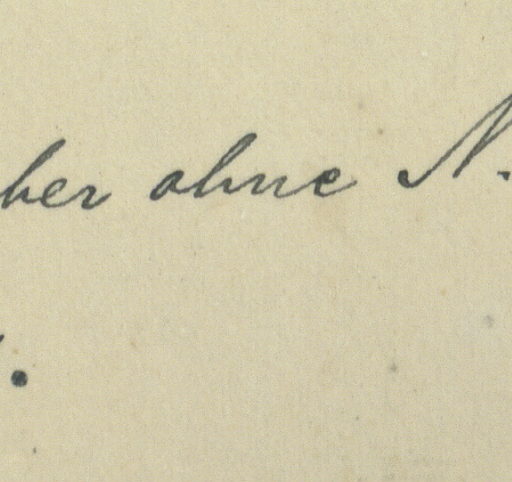 ber ohne N.
.